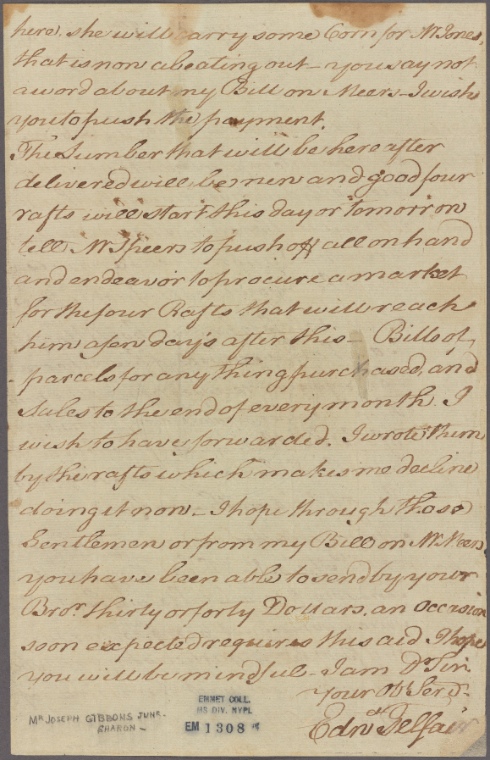 here, she will carry some Corn for Mr Jones,
that is now a beating out – you say not
a word about my Bill on Meers – I wish
you to push the payment.
The Lumber that will be hereafter
delivered will be new and good four
rafts will start this day or tomorrow
tell Mr Speers to push off all on hand
and endeavor to procure a market
for the four Rafts that will reach
him a few day's after this – Bills of
parcels for any thing purchased, and
Sales to the end of every month. I
wish to have forwarded. I wrote them
by the rafts which makes me decline
doing it now – I hope through those
Gentlemen or from my Bill on Mr Meers
you have been able to send by your
Bror. thirty or forty Dollars, an Occasion
soon expected requires this aid I hope
you will be mindful – I am Dr Sir
Your Ob Serv.
Edw Telfair
MR JOSEPH GIBBONS JUNR.
SHARON –
EMMET COLL.
MS DIV. NYPL
EM 1308